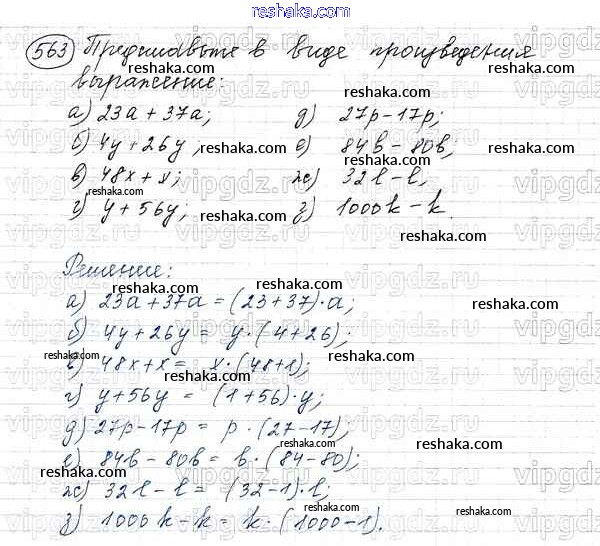 reshaka.com
563 Представьте в виде произведения
выражение:
а) 23a + 37a; д) 27p - 17p;
б) 4y + 26y; е) 84b - 80b;
в) 48x + x; ж) 32l - l,
г) y + 56y; з) 1000k - k.
Решение:
а) 23a + 37a = (23 + 37) · a;
б) 4y + 26y = y · (4 + 26);
в) 48x + x = x · (48 + 1);
г) y + 56y = (1 + 56) · y;
д) 27p - 17p = p · (27 - 17);
е) 84b - 80b = b · (84 - 80);
ж) 32l - l = (32 - 1) · l;
з) 1000k - k = k · (1000 - 1).